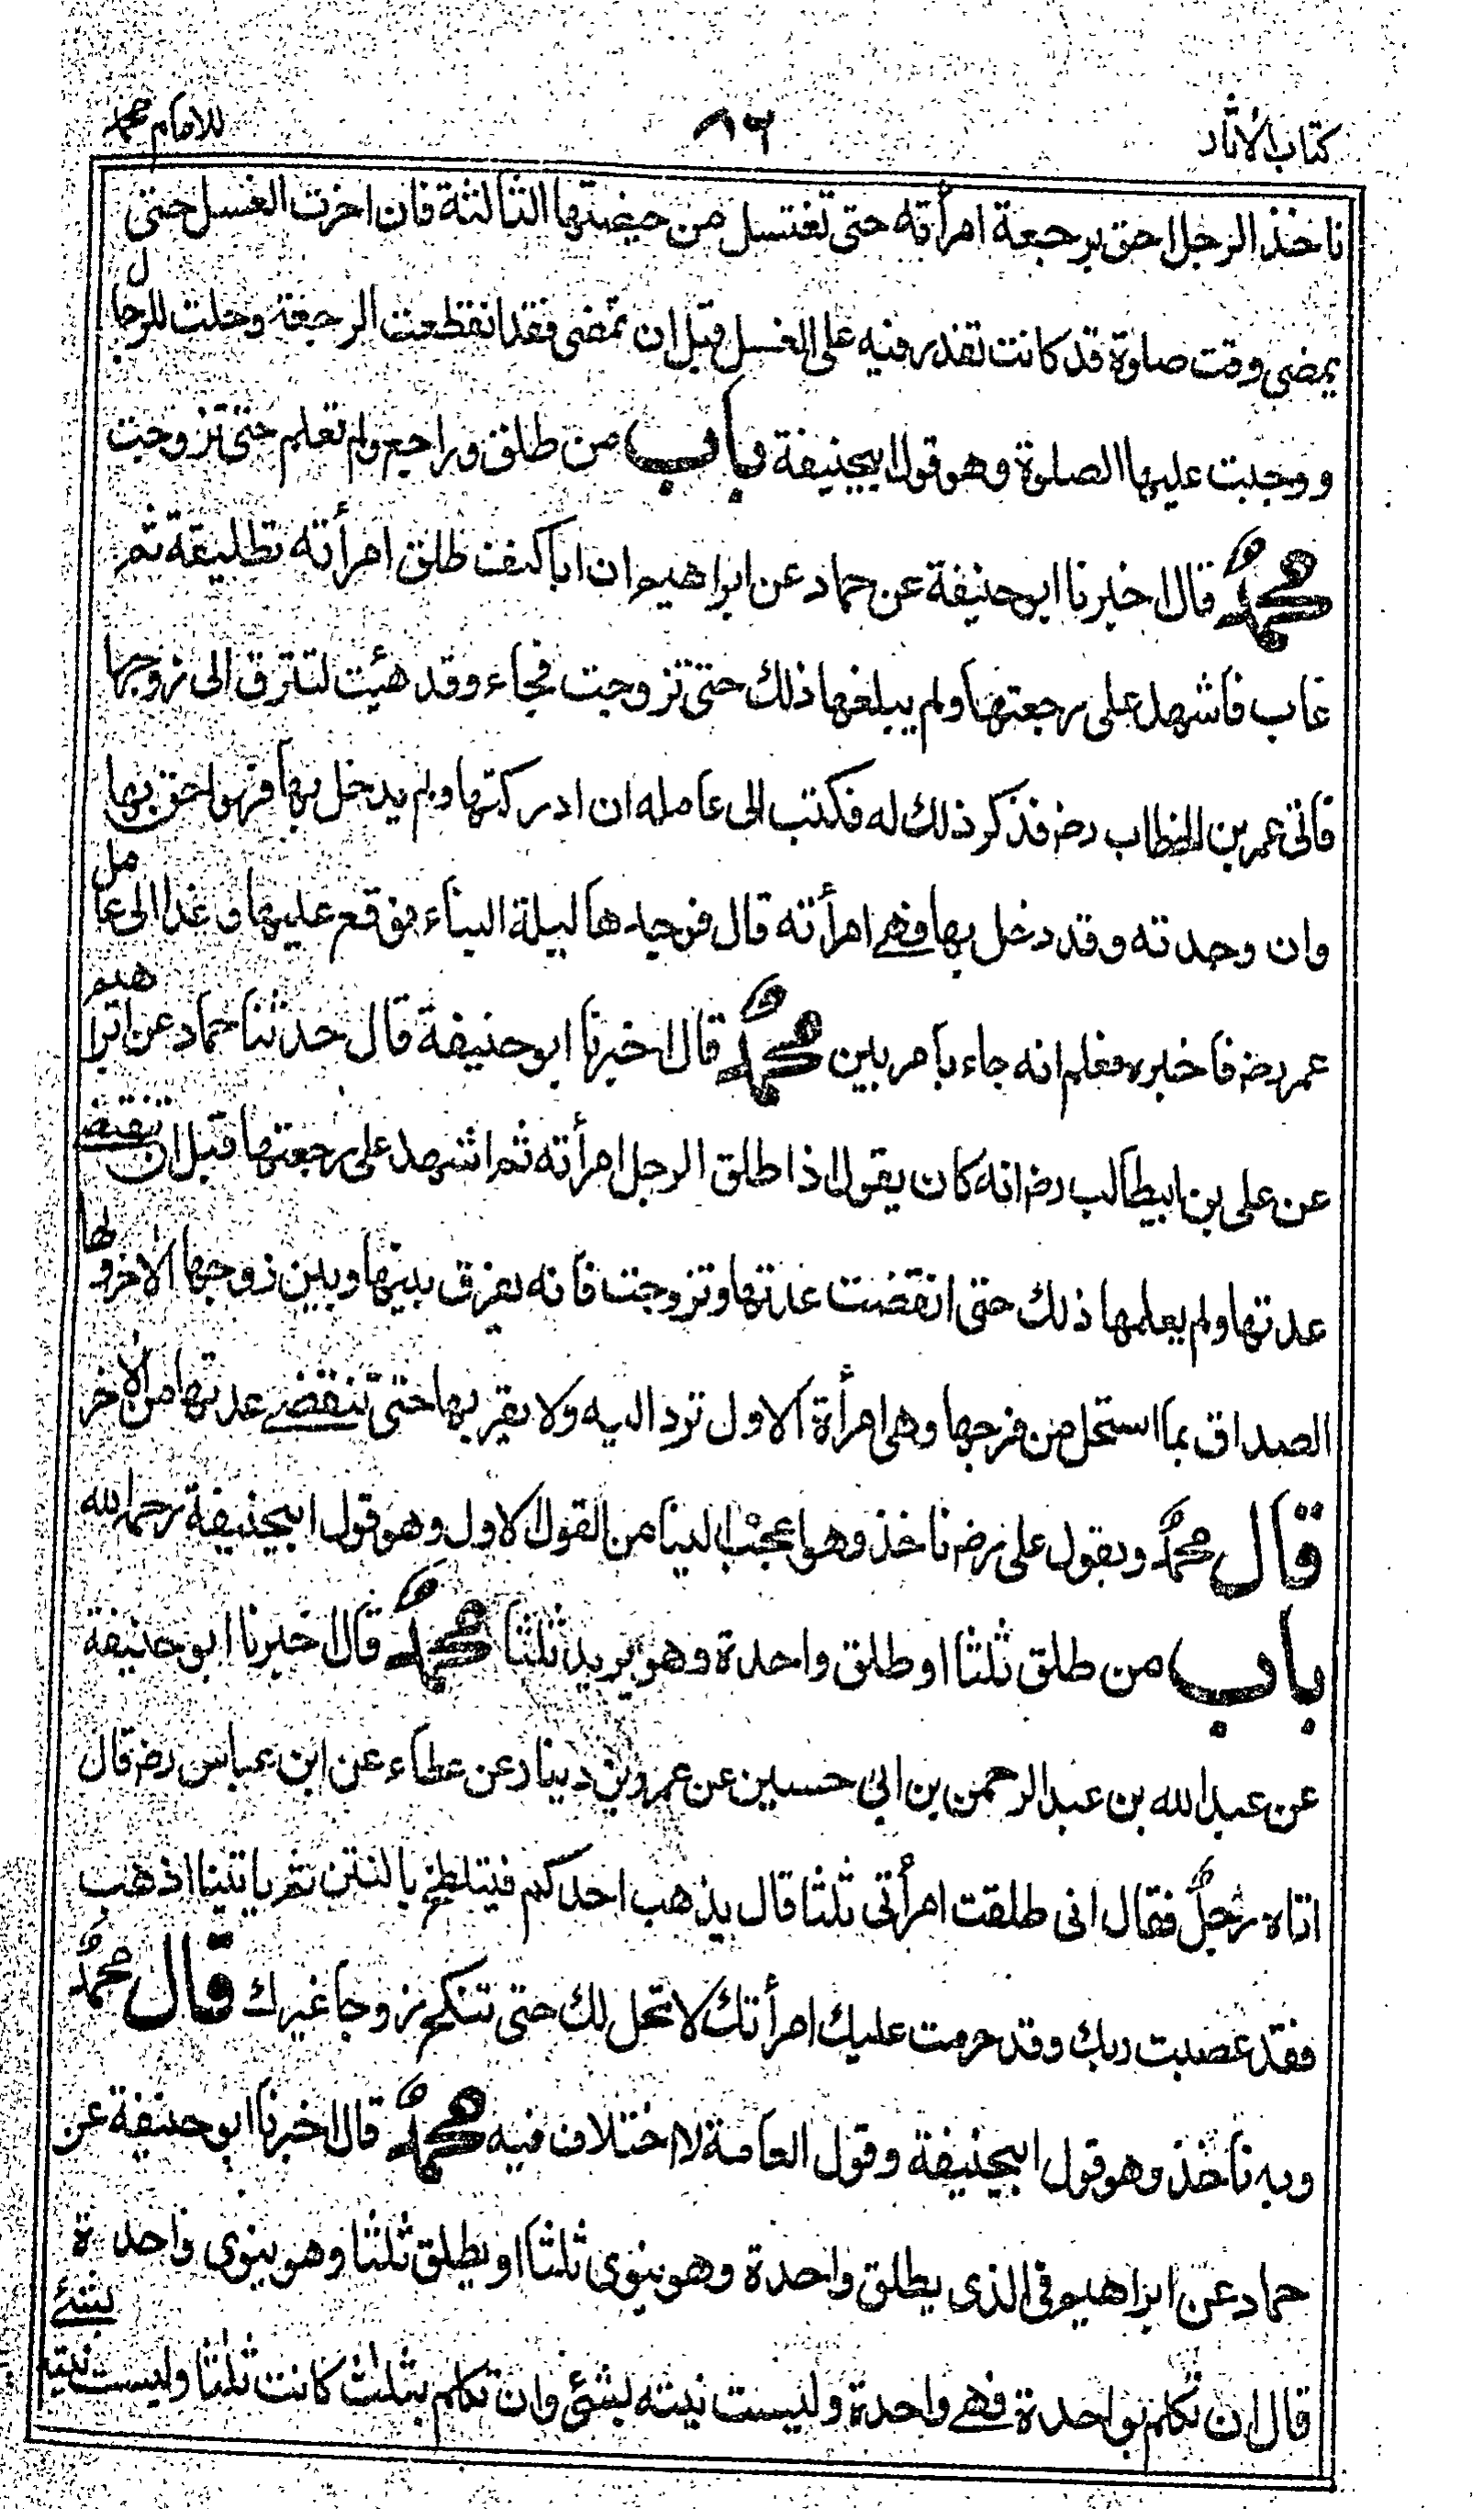 كتاب الآثار ٨٦ للامام محمد
ناخذ الرجل احق برجعة امرأته حتى تغتسل من حيضتها الثالثة فان اخرت الغسل حتى
يمضى وقت صلوة قد كانت تقدر فيه على الغسل قبل ان تمضى فقد انقطعت الرجعة وحلت للرجال
ووجبت عليها الصلوة وهو قول ابيحنيفة باب من طلق وراجع ولم تعلم حتى تزوجت
محمد قال اخبرنا ابو حنيفة عن حماد عن ابراهيم ان ابا كنف طلق امرأته تطليقة ثم
غاب فاشهد على رجعتها ولم يبلغها ذلك حتى تزوجت فجاء وقد هيئت لتزف الى زوجها
فاتى عمر بن الخطاب رضـ فذكر ذلك له فكتب الى عامله ان ادركتها ولم يدخل بها فهو احق بها
وان وجدته وقد دخل بها فهى امرأته قال فوجدها ليلة البناء فوقع عليها وغدا الى عامل
عمر رضـ فاخبره فعلم انه جاء بامر بين محمد قال اخبرنا ابو حنيفة قال حدثنا حماد عن ابراهيم
عن على بن ابيطالب رضـ انه كان يقول اذا طلق الرجل امرأته ثم اشهد على رجعتها قبل ان تنقضى
عدتها ولم يعلمها ذلك حتى انقضت عدتها وتزوجت فانه يفرق بينها وبين زوجها الاخر ولها
الصداق بما استحل من فرجها وهى امرأة الاول ترد اليه ولا يقربها حتى تنقضى عدتها من الاخر
قال محمد وبقول على رضـ ناخذ وهو اعجب الينا من القول الاول وهو قول ابيحنيفة رحمه الله
باب من طلق ثلثا او طلق واحدة وهو يريد ثلثا محمد قال اخبرنا ابو حنيفة
عن عبد الله بن عبد الرحمن بن ابى حسين عن عمرو بن دينار عن عطاء عن ابن عباس رضـ قال
اتاه رجل فقال انى طلقت امرأتى ثلثا قال يذهب احدكم فيتلطخ بالنتن ثم ياتينا اذهب
فقد عصيت ربك وقد حرمت عليك امرأتك لا تحل لك حتى تنكح زوجا غيرك قال محمد
وبه ناخذ وهو قول ابيحنيفة وقول العامة لا اختلاف فيه محمد قال اخبرنا ابو حنيفة عن
حماد عن ابراهيم فى الذى يطلق واحدة وهو ينوى ثلثا او يطلق ثلثا وهو ينوى واحدة
قال ان تكلم بواحدة فهى واحدة وليست نيته بشئ وان تكلم بثلث كانت ثلثا وليست نيته بشئ